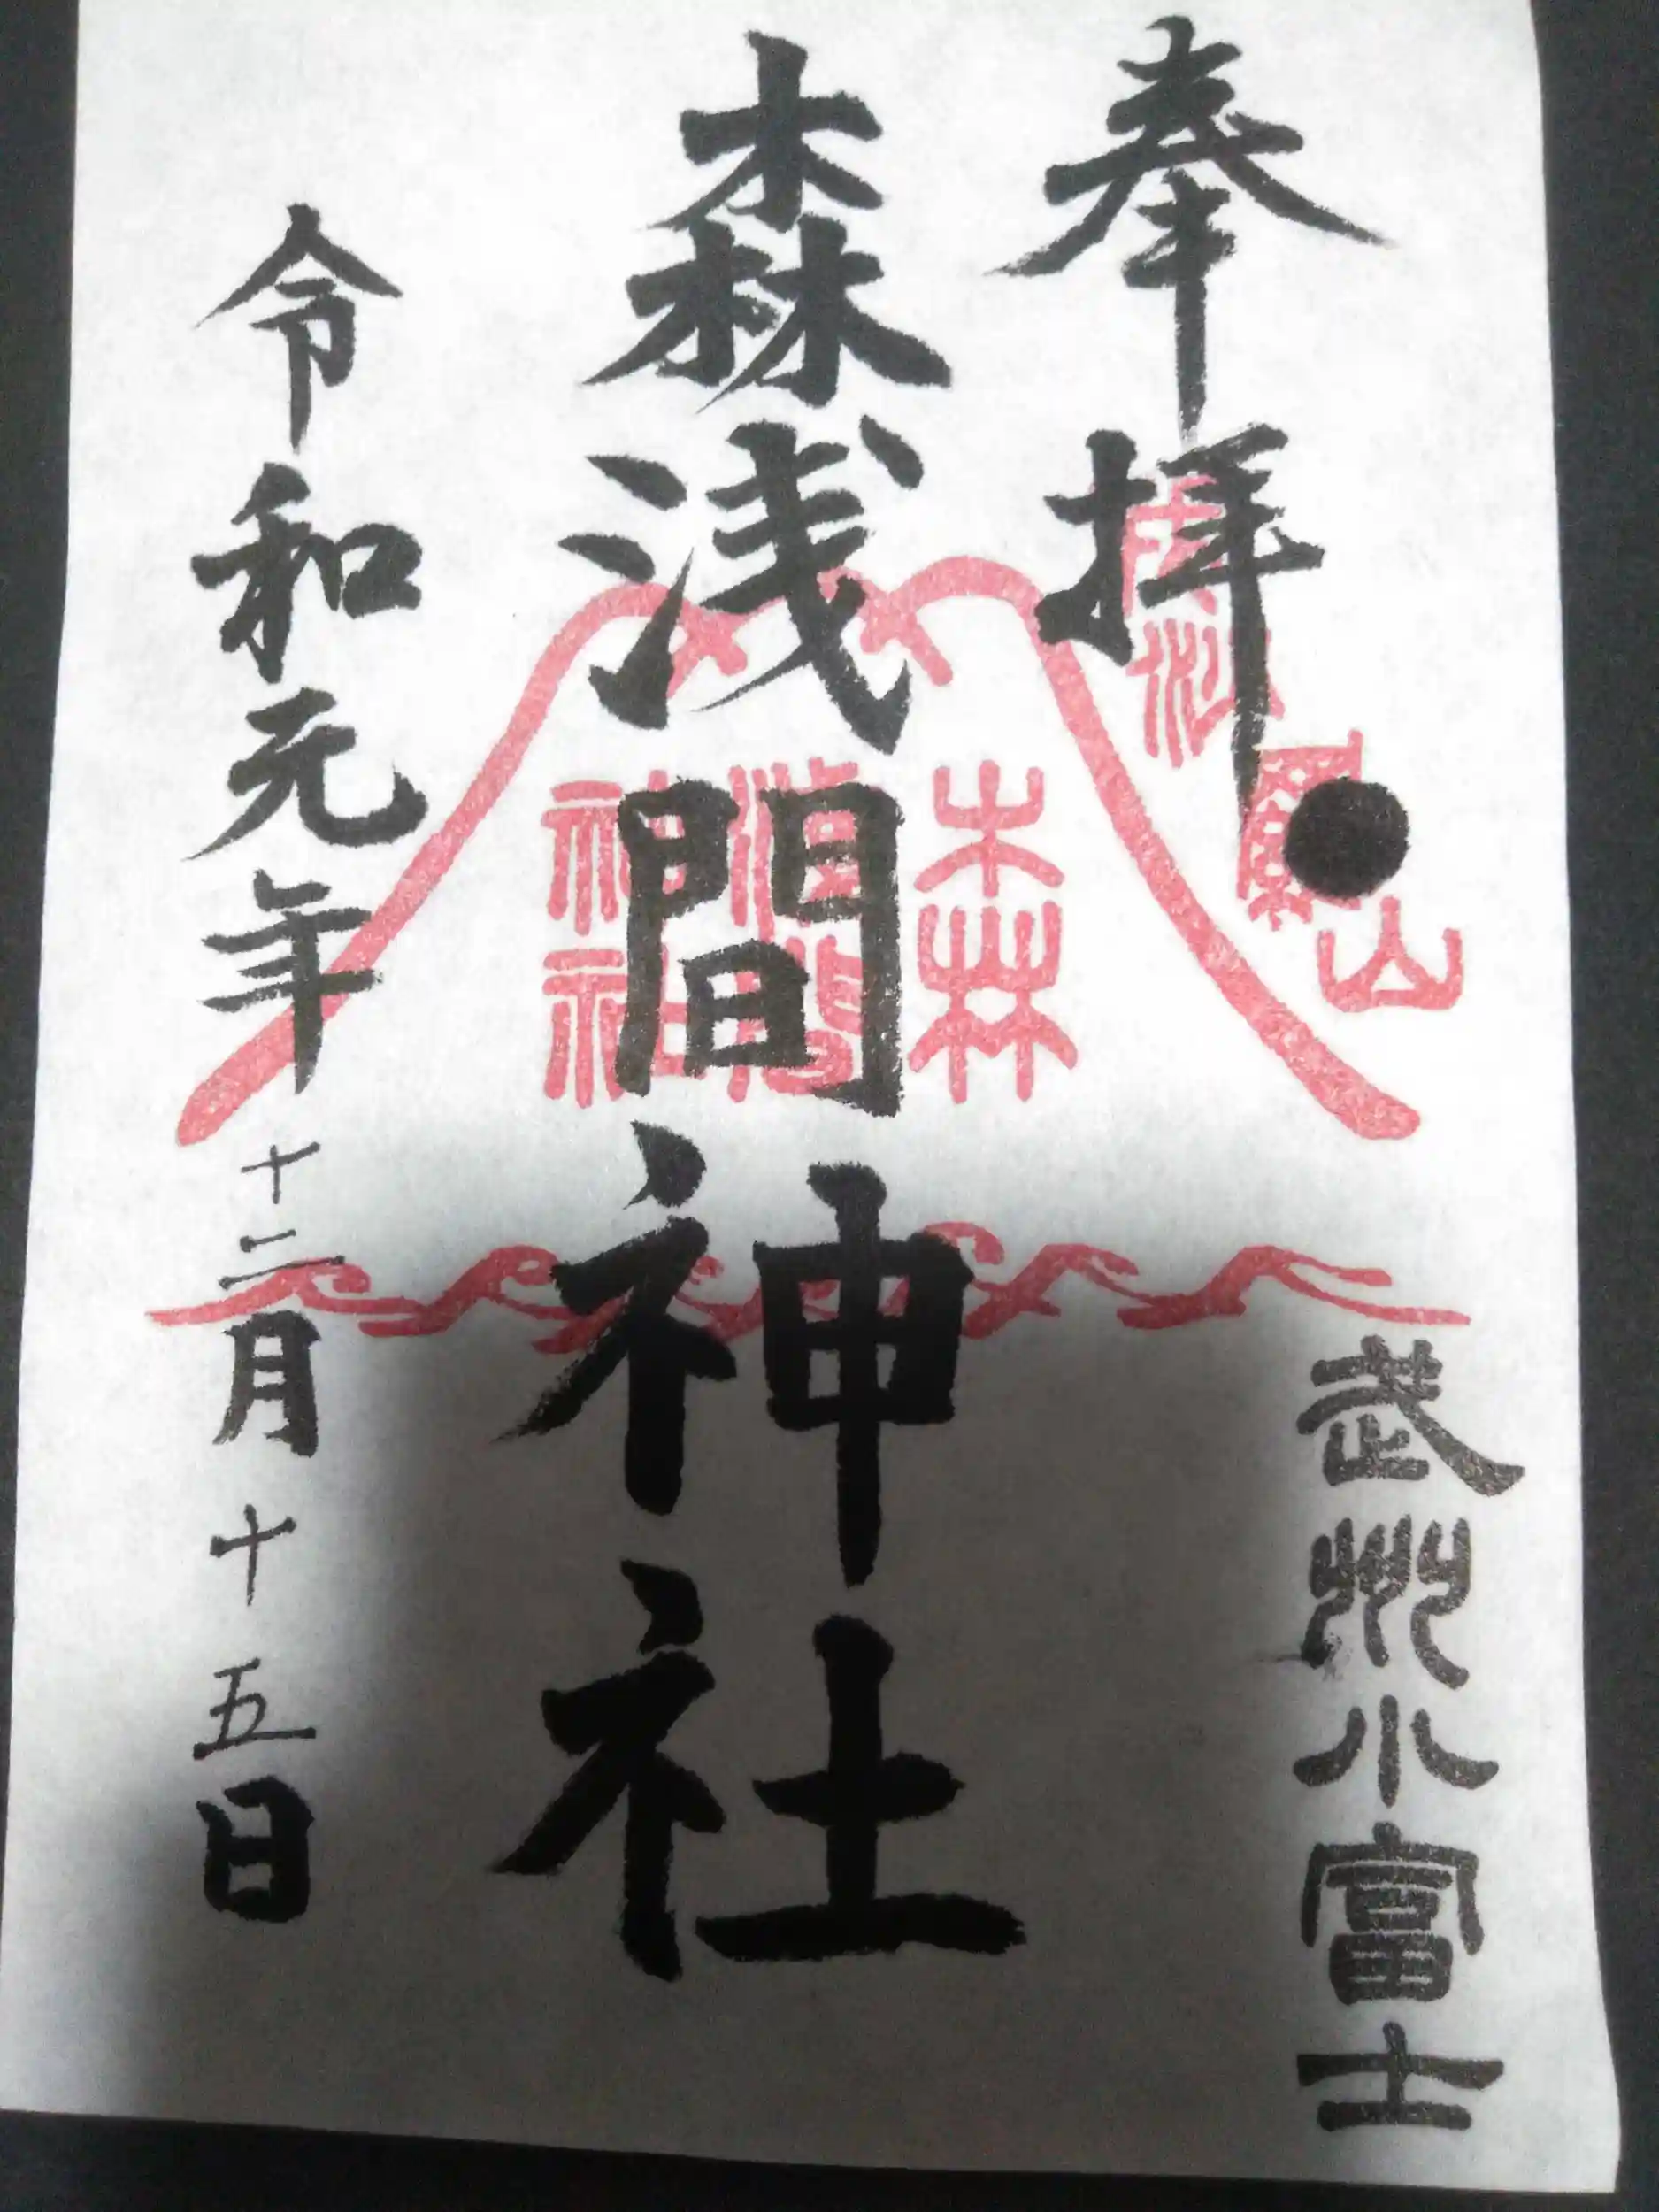 奉拝
武州小富士
森浅間神社
森
浅間
神社
令和元年十二月十五日